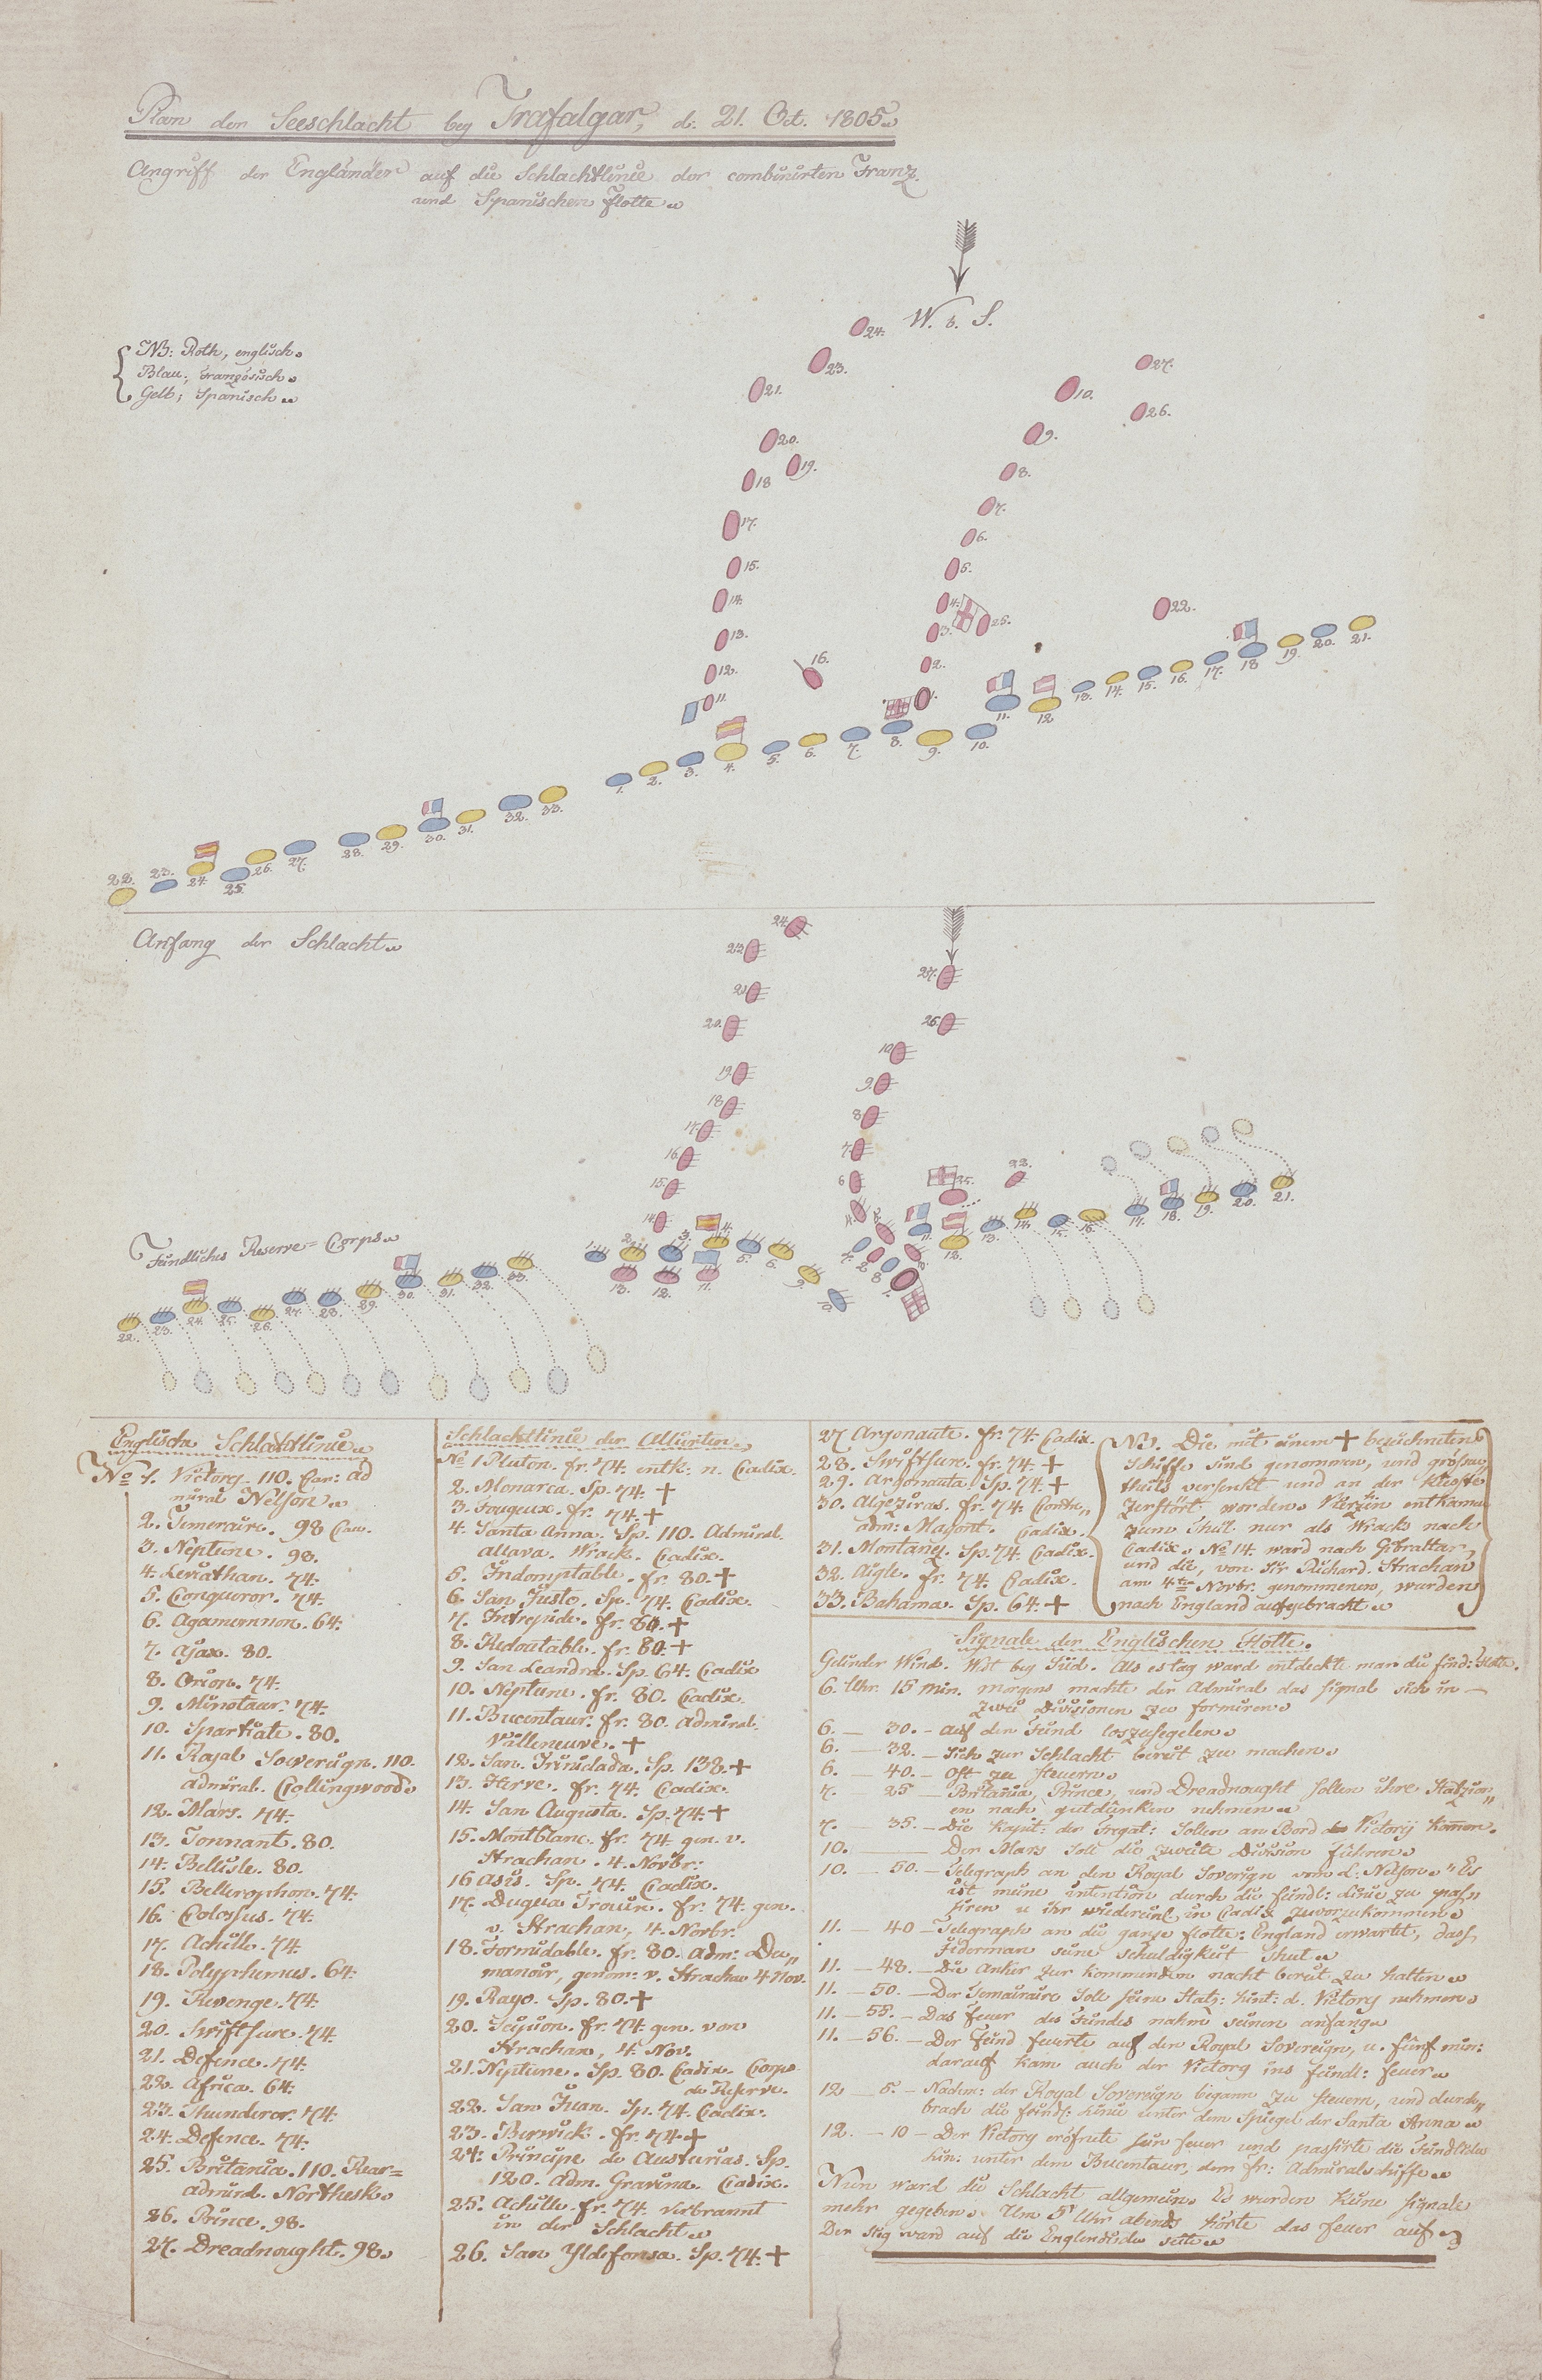 Plan der Seeschlacht bey Trafalgar, d. 21. Oct. 1805.
Angriff der Engländer auf die Schlachtlinie der combinirten Franz.
und Spanischen Flotte.
W. b. S.
NB: Roth, englisch.
Blau; französisch.
Gelb; Spanisch.
24.
23.
21.
20.
19.
18
17.
15.
14.
13.
12.
11.
16.
27.
26.
10.
9.
8.
7.
6.
5.
4.
3.
25.
2.
1.
22.
22.
23.
24.
25.
26.
27.
28.
29.
30.
31.
32.
33.
1.
2.
3.
4.
5.
6.
7.
8.
9.
10.
11.
12
13.
14.
15.
16.
17.
18
19.
20.
21.
Anfang der Schlacht.
24.
23.
21.
20.
19.
18.
17.
16.
15.
14.
27.
26.
10.
9.
8.
7.
6
25.
22.
Feindliches Reserve-Corps.
22.
23.
24.
25.
26.
27.
28.
29.
30.
31.
32.
33.
1.
2.
3.
4.
5.
6.
9.
10.
13.
12.
11.
11.
12.
13.
14.
15.
16.
17.
18.
19.
20.
21.
Englische Schlachtlinie.
No 1. Victory. 110. Can: Ad
miral Nelson.
2. Temeraire. 98 Can.
3. Neptune. 98.
4. Leviathan. 74.
5. Conqueror. 74.
6. Agamemnon. 64.
7. Ajax. 80.
8. Orion. 74.
9. Minotaur. 74.
10. Spartiate. 80.
11. Royal Sovereign. 110.
Admiral. Collingwood.
12. Mars. 74.
13. Tonnant. 80.
14. Bellisle. 80.
15. Bellerophon. 74.
16. Colossus. 74.
17. Achille. 74.
18. Polyphemus. 64.
19. Revenge. 74.
20. Swiftsure. 74.
21. Defence. 74.
22. Africa. 64.
23. Thunderor. 74.
24. Defence. 74.
25. Britania. 110. Rear=
admird. Northesk.
26. Prince. 98.
27. Dreadnought. 98.
Schlachtlinie der Alliirten.
No 1 Pluton. fr. 74. entk: n. Cadix.
2. Monarca. Sp. 74. +
3. Fougeux. fr. 74. +
4. Santa Anna. Sp. 110. Admiral.
Allava. Wrack. Cadix.
5. Indomptable. fr. 80. +
6. San Justo. Sp. 74. Cadix.
7. Intrepide. fr. 80. +
8. Redoutable. fr. 80. +
9. San Leandra. Sp. 64. Cadix
10. Neptune. fr. 80. Cadix.
11. Bucentaur. fr. 80. Admiral.
Villeneuve. +
12. San. Trinidada. Sp. 138. +
13. Herve. fr. 74. Cadix.
14. San Augusta. Sp. 74. +
15. Montblanc. fr. 74. gen. v.
Strachan. 4. Novbr.
16 Asis. Sp. 74. Cadix.
17. Dugua Trouin. fr. 74. gen.
v. Strachan, 4. Novbr.
18. Formidable. fr. 80. Adm: Du„
manoir, genom: v. Strachan 4 Nov.
19. Rayo. Sp. 80. +
20. Scipion. fr. 74. gen. von
Strachan, 4. Nov.
21. Neptune. Sp. 80. Cadix. Corps
de Reserve.
22. San Juan. Sp. 74. Cadix.
23. Berwick. fr. 74. +
24. Principe de Austurias. Sp.
120. Adm. Gravina. Cadix.
25. Achille. fr. 74. verbrannt
in der Schlacht.
26. San Yldefonsa. Sp. 74. +
27. Argonaute. fr. 74. Cadix.
28. Swiftsure. fr. 74. +
29. Argonauta. Sp. 74. +
30. Algeziras. fr. 74. Contre„
adm: Magont. Cadix.
31. Montaney. Sp. 74. Cadix.
32. Aigle. fr. 74. Cadix.
33. Bahama. Sp. 64. +
NB. Die mit einem + bezeichneten
Schiffe sind genommen, und grössten
theils versenkt und an der Küste
zerstört worden. Vierzehn entkamen
zum theil nur als Wracks nach
Cadix. No 14. ward nach Gibraltar,
und die, von Sir Richard. Strachan
am 4ten Novbr. genommenen, wurden
nach England aufgebracht.
Signale der Englischen Flotte.
Gelinder Wind. West bey Süd. Als es tag ward entdeckte man die feind: Flotte.
6. Uhr. 15 min. morgens machte der Admiral das signal sich in
zwei Divisionen zu formiren.
6. — 30. — auf den Feind loszusegelen.
6. — 32. — Sich zur Schlacht bereit zu machen.
6. — 40. — Ost zu steuern.
7. — 25 — Britania, Prince, und Dreadnought sollen ihre Statzion„
en nach gutdünken nehmen.
7. — 35. — Die Kapit: der Fregat: sollen an Bord der Victory kommen.
10. — Der Mars soll die zweite Division führen.
10. — 50. — Telegraph an den Royal Soverign von L: Nelson. "Es
ist meine intention durch die feindl: Linie zu pas„
siren u ihr wiedereinl. in Cadix zuvorzukommen.
11. — 40 — Telegraph an die ganze flotte: England erwartet, dass
Jederman seine schuldigkeit thut.
11. — 48. — Die Anker zur kommenden nacht bereit zu halten.
11. — 50. — Der Temairaire soll seine Statz: hint: d. Victory nehmen.
11. — 55. — Das feuer des Feindes nahm seinen anfang.
11. — 56. — Der Feind feuerte auf den Royal Sovereign, u. fünf min:
darauf kam auch der Victory ins feindl: feuer.
12 — 5. — Nachm: der Royal Sovereign begann zu feuern, und durch„
brach die feindl: Linie unter dem Spiegel der Santa Anna.
12. — 10 — Der Victory eröfnete sein feuer und passirte die Feindliche
Lin: unter dem Bucentaur, dem fr: Admiralschiffe.
Nun ward die Schlacht allgemein. Es wurden keine signale
mehr gegeben. Um 5 Uhr abends hörte das feuer auf.
Der sieg ward auf die Englendische seite.